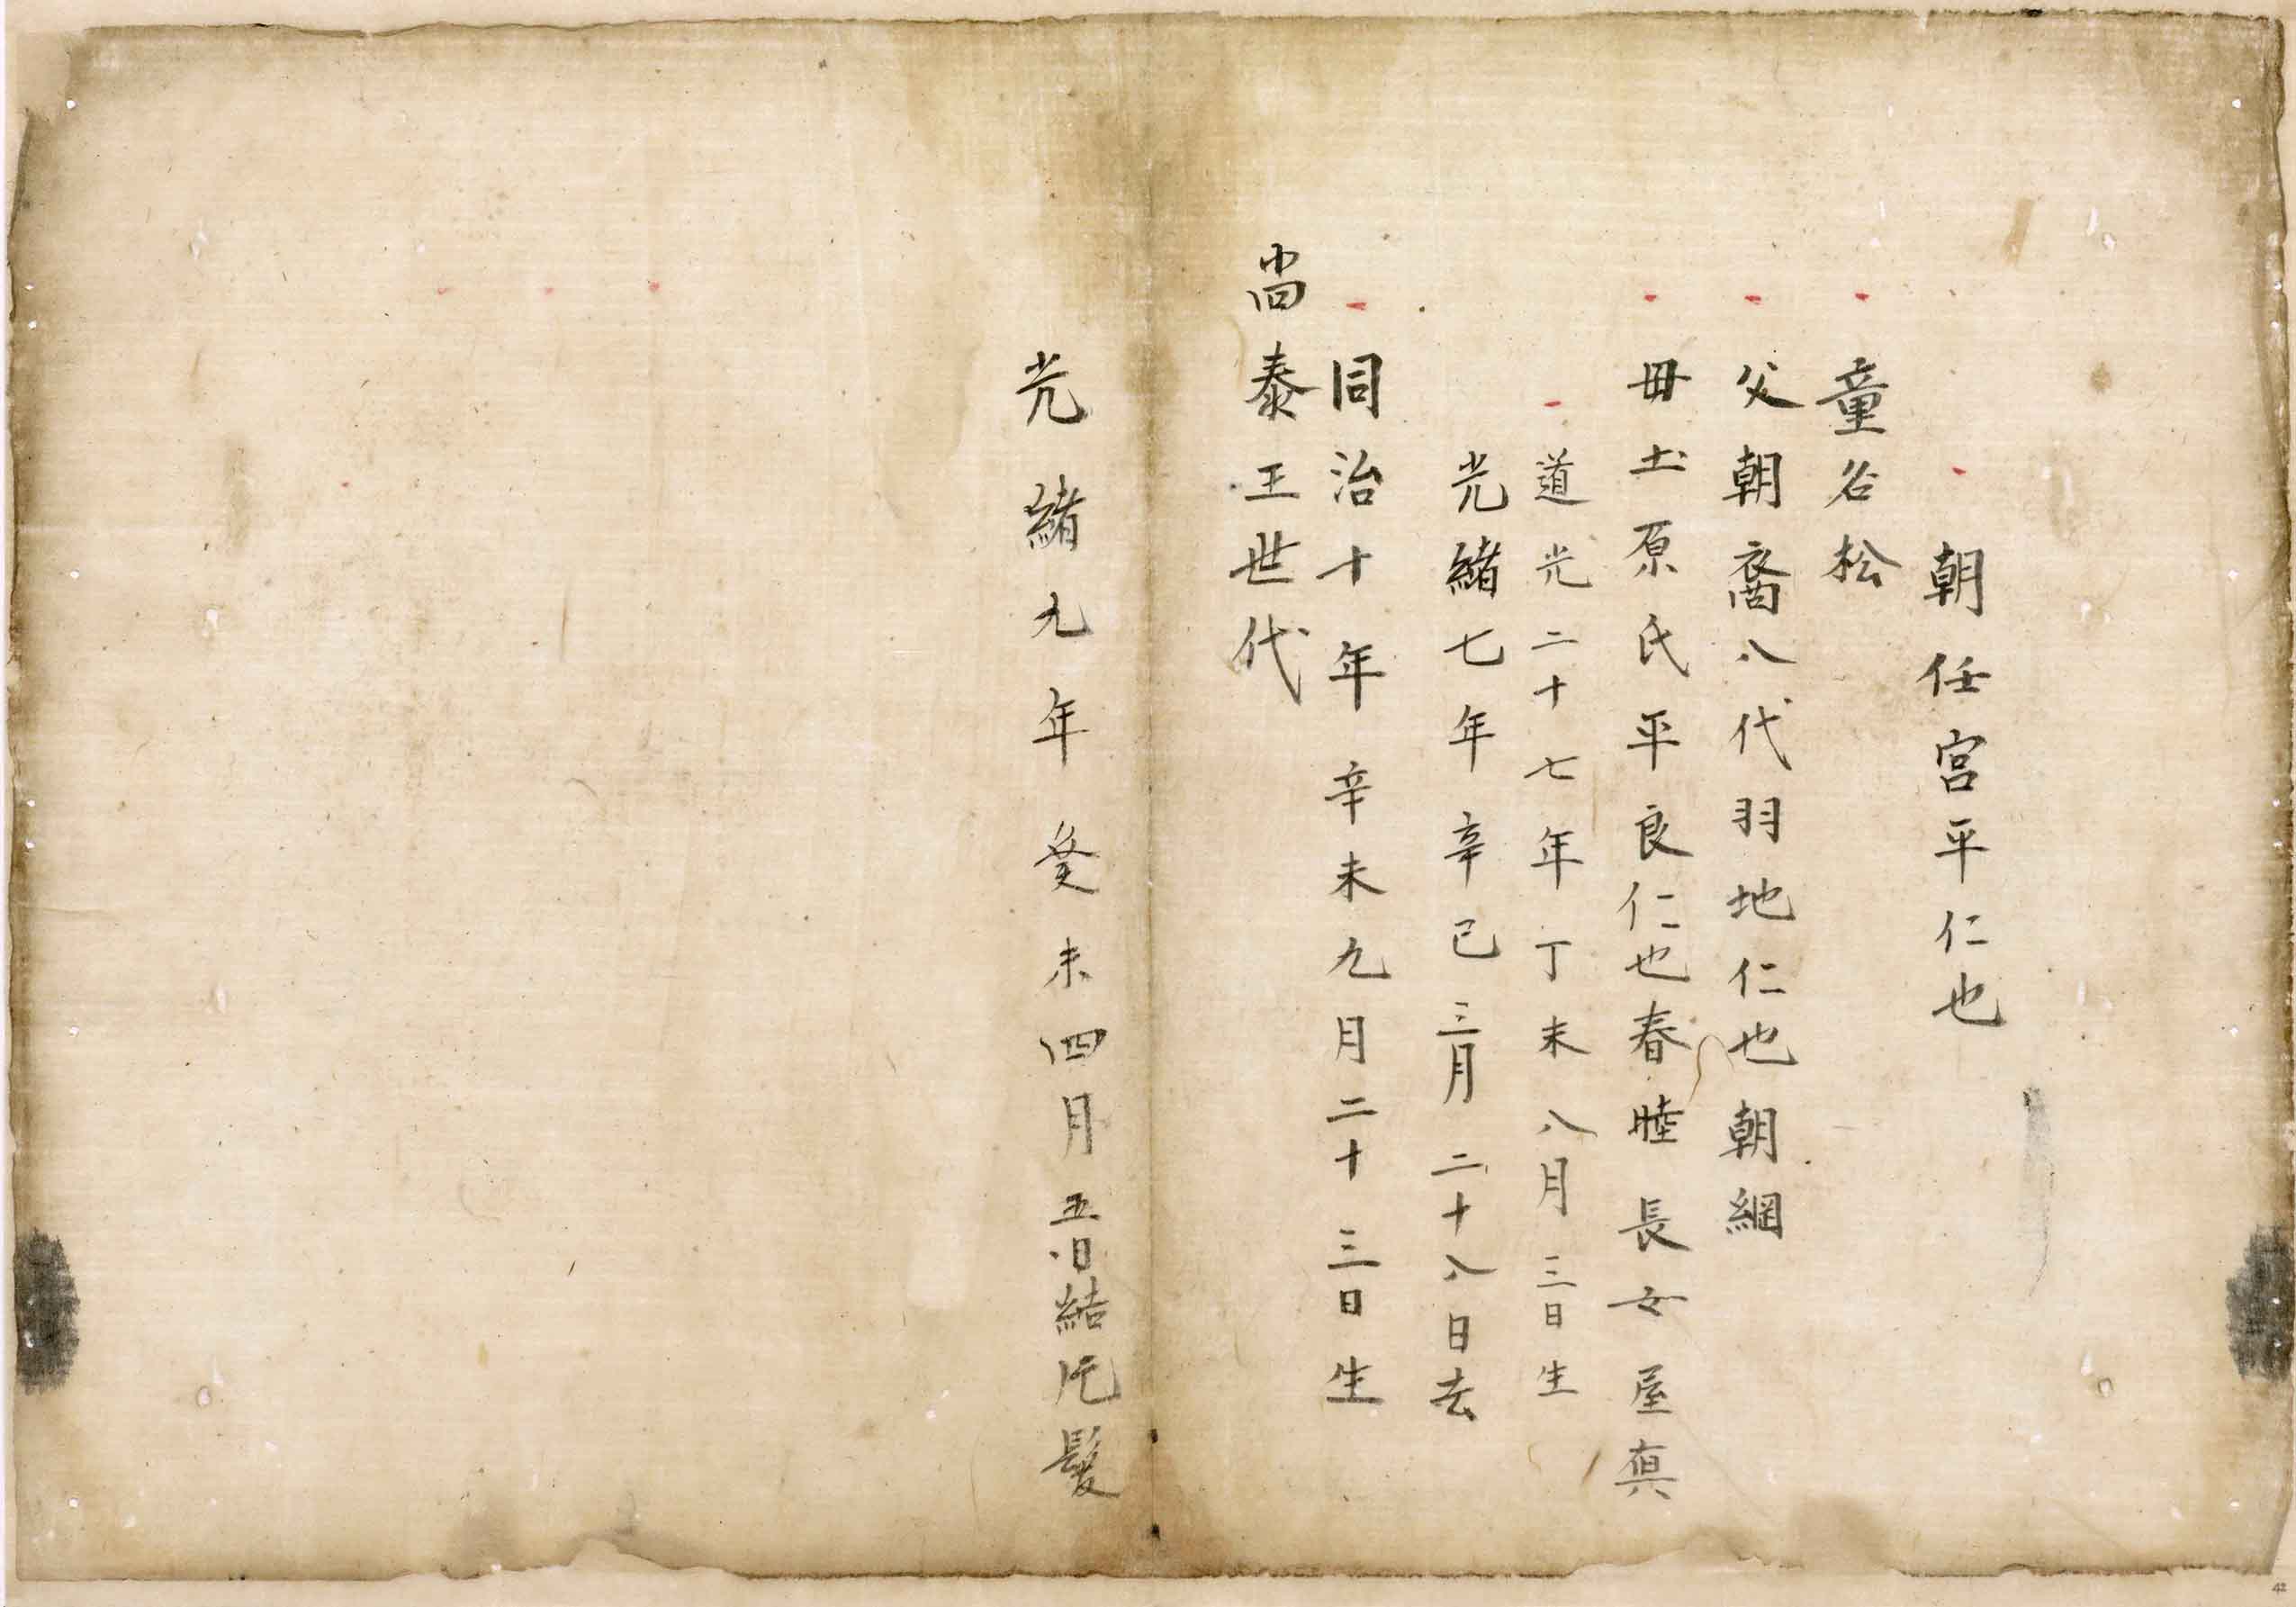 朝任宮平仁也
童名松
父朝裔八代羽地仁也朝綱
毋土原氏平良仁也春睦長女屋真
道光二十七年丁未八月三日生
光緒七年辛巳三月二十八日去
同治十年辛未九月二十三日生
尚泰王世代
光緒九年癸未四月五日結髮
42